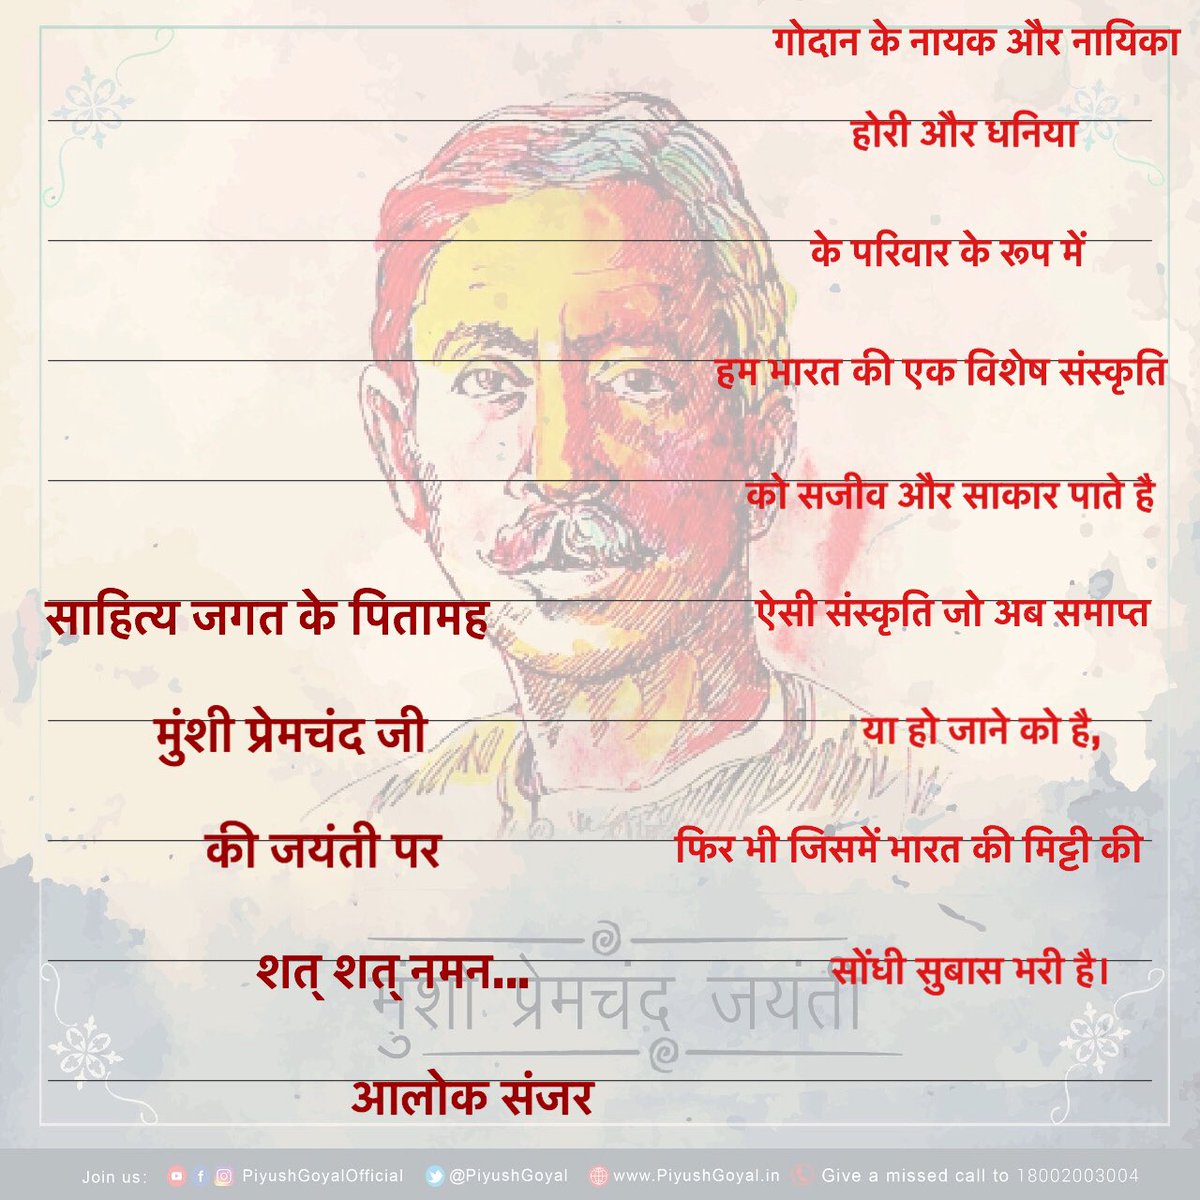 गोदान के नायक और नायिका
होरी और धनिया
के परिवार के रूप में
हम भारत की एक विशेष संस्कृति
को सजीव और साकार पाते है
ऐसी संस्कृति जो अब समाप्त
या हो जाने को है,
फिर भी जिसमें भारत की मिट्टी की
सोंधी सुबास भरी है।
साहित्य जगत के पितामह
मुंशी प्रेमचंद जी
की जयंती पर
शत् शत् नमन...
आलोक संजर
मुंशी प्रेमचंद जयंती
Join us: PiyushGoyalOfficial @PiyushGoyal www.PiyushGoyal.in Give a missed call to 18002003004